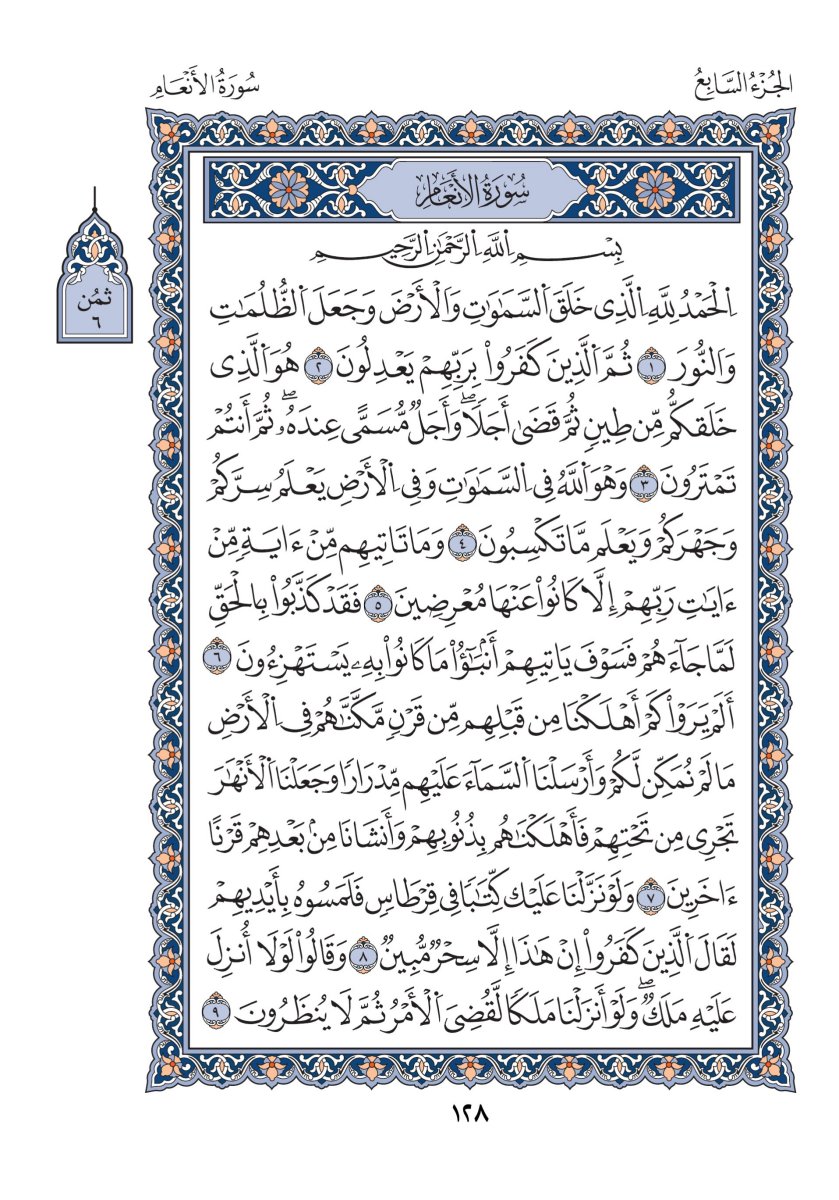 الجُزْءُ السَّابِعُ
سُورَةُ الأَنْعَامِ
سُورَةُ الأَنْعَامِ
بِسْمِ اِللَّهِ اِلرَّحْمَٰنِ اِلرَّحِيمِ
ثمُن
٦
اِ۬لْحَمْدُ لِلَّهِ اِ۬لَّذِى خَلَقَ اَ۬لسَّمَٰوَٰتِ وَالْأَرْضَ وَجَعَلَ اَ۬لظُّلُمَٰتِ
وَالنُّورَ ١ ثُمَّ اَ۬لَّذِينَ كَفَرُواْ بِرَبِّهِمْ يَعْدِلُونَ ٢ هُوَ اَ۬لَّذِى
خَلَقكُّم مِّن طِينٖ ثُمَّ قَضَىٰ أَجَلٗاۖ وَأَجَلٞ مُّسَمًّى عِندَهُۥۖ ثُمَّ أَنتُمْ
تَمْتَرُونَ ٣ وَهْوَ اَ۬للَّهُ فِى اِ۬لسَّمَٰوَٰتِ وَفِى اِ۬لْأَرْضِ يَعْلَمُ سِرَّكُمْ
وَجَهْرَكُمْ وَيَعْلَم مَّا تَكْسِبُونَ ٤ وَمَا تَاتِيهِم مِّنْ ءَايَةٖ مِّنْ
ءَايَٰتِ رَبِّهِمْ إِلَّا كَانُواْ عَنْهَا مُعْرِضِينَ ٥ فَقَدْ كَذَّبُواْ بِالْحَقِّ
لَمَّا جَآءَهُمْ فَسَوْفَ يَاتِيهِمْ أَنۢبَٰٓؤُاْ مَا كَانُواْ بِهِۦ يَسْتَهْزِءُونَ ٦
أَلَمْ يَرَوْاْ كَمْ أَهْلَكْنَا مِن قَبْلِهِم مِّن قَرْنٖ مَّكَّنَّٰهُمْ فِى اِ۬لْأَرْضِ
مَا لَمْ نُمَكِّن لَّكُمْ وَأَرْسَلْنَا اَ۬لسَّمَآءَ عَلَيْهِم مِّدْرَارٗا وَجَعَلْنَا اَ۬لْأَنْهَٰرَ
تَجْرِى مِن تَحْتِهِمْ فَأَهْلَكْنَٰهُم بِذُنُوبِهِمْ وَأَنشَانَا مِنۢ بَعْدِهِمْ قَرْنًا
ءَاخَرِينَ ٧ وَلَوْ نَزَّلْنَا عَلَيْك كِّتَٰبٗا فِى قِرْطَاسٖ فَلَمَسُوهُ بِأَيْدِيهِمْ
لَقَالَ اَ۬لَّذِينَ كَفَرُواْ إِنْ هَٰذَا إِلَّا سِحْرٞ مُّبِينٞ ٨ وَقَالُواْ لَوْلَا أُنزِلَ
عَلَيْهِ مَلَكٞۖ وَلَوْ أَنزَلْنَا مَلَكٗا لَّقُضِىَ اَ۬لْأَمْرُ ثُمَّ لَا يُنظَرُونَ ٩
١٢٨